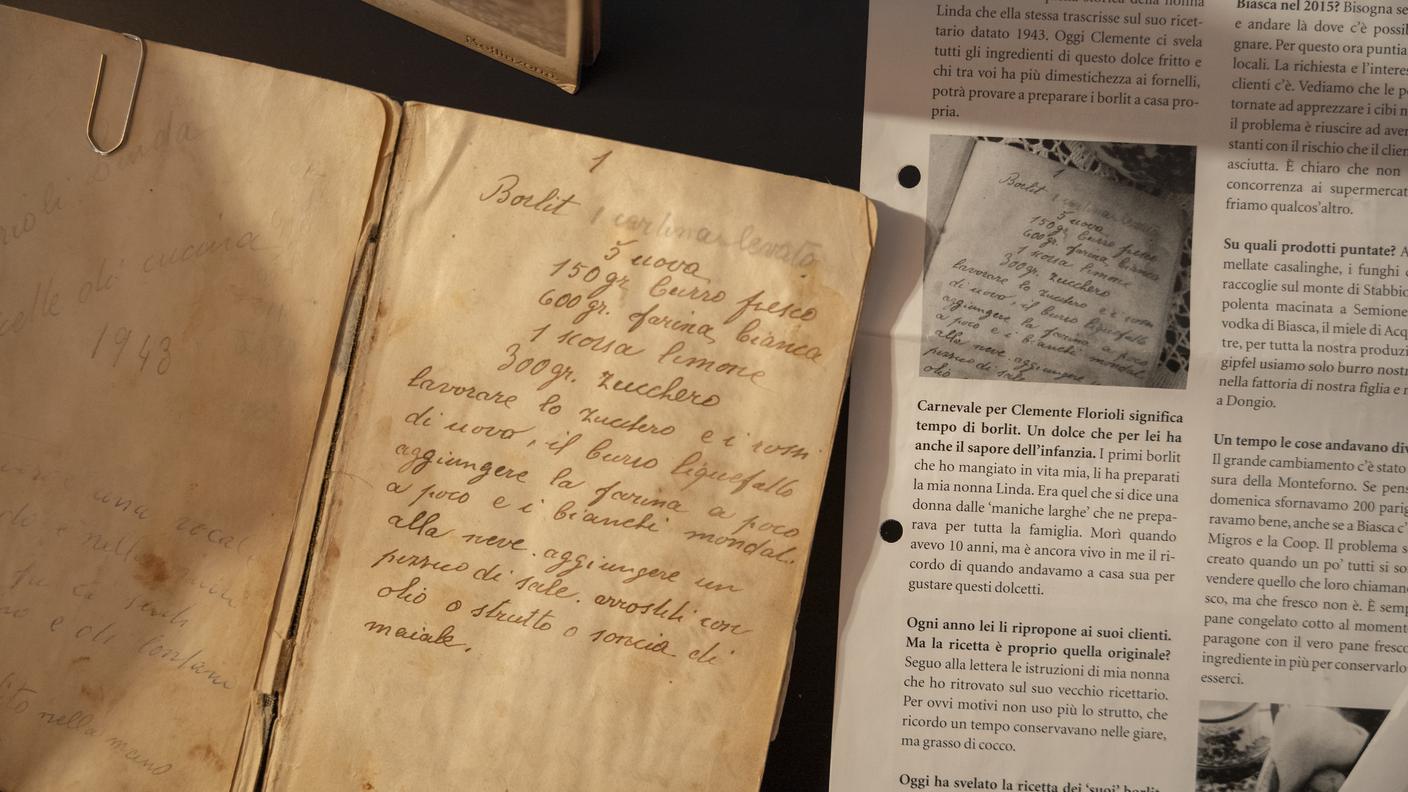 Bellinzona
Linda
di cucina
1943
una
e nella
e di lontano
nella mano
1
Borlit 1 cartina levato
5 uova
150gr. burro fresco
600gr. farina bianca
1 scorsa limone
300gr. zucchero
lavorare lo zucchero e i rossi
di uova, il burro liquefatto
aggiungere la farina a poco
a poco e i bianchi mondat.
alla neve. aggiungere un
pizzico di sale. arrostiti con
olio o strutto o soncia di
maiale.
storia della nonna
Linda che ella stessa trascrisse sul suo ricet-
tario datato 1943. Oggi Clemente ci svela
tutti gli ingredienti di questo dolce fritto e
chi tra voi ha più dimestichezza ai fornelli,
potrà provare a preparare i borlit a casa pro-
pria.
1
Borlit 1 cartina levato
5 uova
150gr. burro fresco
600gr. farina bianca
1 scorsa limone
300gr. zucchero
lavorare lo zucchero e i rossi
di uova, il burro liquefatto
aggiungere la farina a poco
a poco e i bianchi mondat.
alla neve. aggiungere un
pizzico di sale.
olio
Carnevale per Clemente Florioli significa
tempo di borlit. Un dolce che per lei ha
anche il sapore dell'infanzia. I primi borlit
che ho mangiato in vita mia, li ha preparati
la mia nonna Linda. Era quel che si dice una
donna dalle 'maniche larghe' che ne prepa-
rava per tutta la famiglia. Morì quando
avevo 10 anni, ma è ancora vivo in me il ri-
cordo di quando andavamo a casa sua per
gustare questi dolcetti.
Ogni anno lei li ripropone ai suoi clienti.
Ma la ricetta è proprio quella originale?
Seguo alla lettera le istruzioni di mia nonna
che ho ritrovato sul suo vecchio ricettario.
Per ovvi motivi non uso più lo strutto, che
ricordo un tempo conservavano nelle giare,
ma grasso di cocco.
Oggi ha svelato la ricetta dei 'suoi' borlit
Biasca nel 2015? Bisogna se
e andare là dove c'è possib
gnare. Per questo ora puntia
locali. La richiesta e l'interes
clienti c'è. Vediamo che le p
tornate ad apprezzare i cibi n
il problema è riuscire ad aver
stanti con il rischio che il clien
asciutta. È chiaro che non
concorrenza ai supermercat
friamo qualcos'altro.
Su quali prodotti puntate? A
mellate casalinghe, i funghi c
raccoglie sul monte di Stabbio
polenta macinata a Semione
vodka di Biasca, il miele di Acq
tre, per tutta la nostra produzi
gipfel usiamo solo burro nostr
nella fattoria di nostra figlia e n
a Dongio.
Un tempo le cose andavano div
Il grande cambiamento c'è stato
sura della Monteforno. Se pens
domenica sfornavamo 200 parig
ravamo bene, anche se a Biasca c'
Migros e la Coop. Il problema s
creato quando un po' tutti si so
vendere quello che loro chiaman
sco, ma che fresco non è. È semp
pane congelato cotto al moment
paragone con il vero pane fresco
ingrediente in più per conservarlo
esserci.